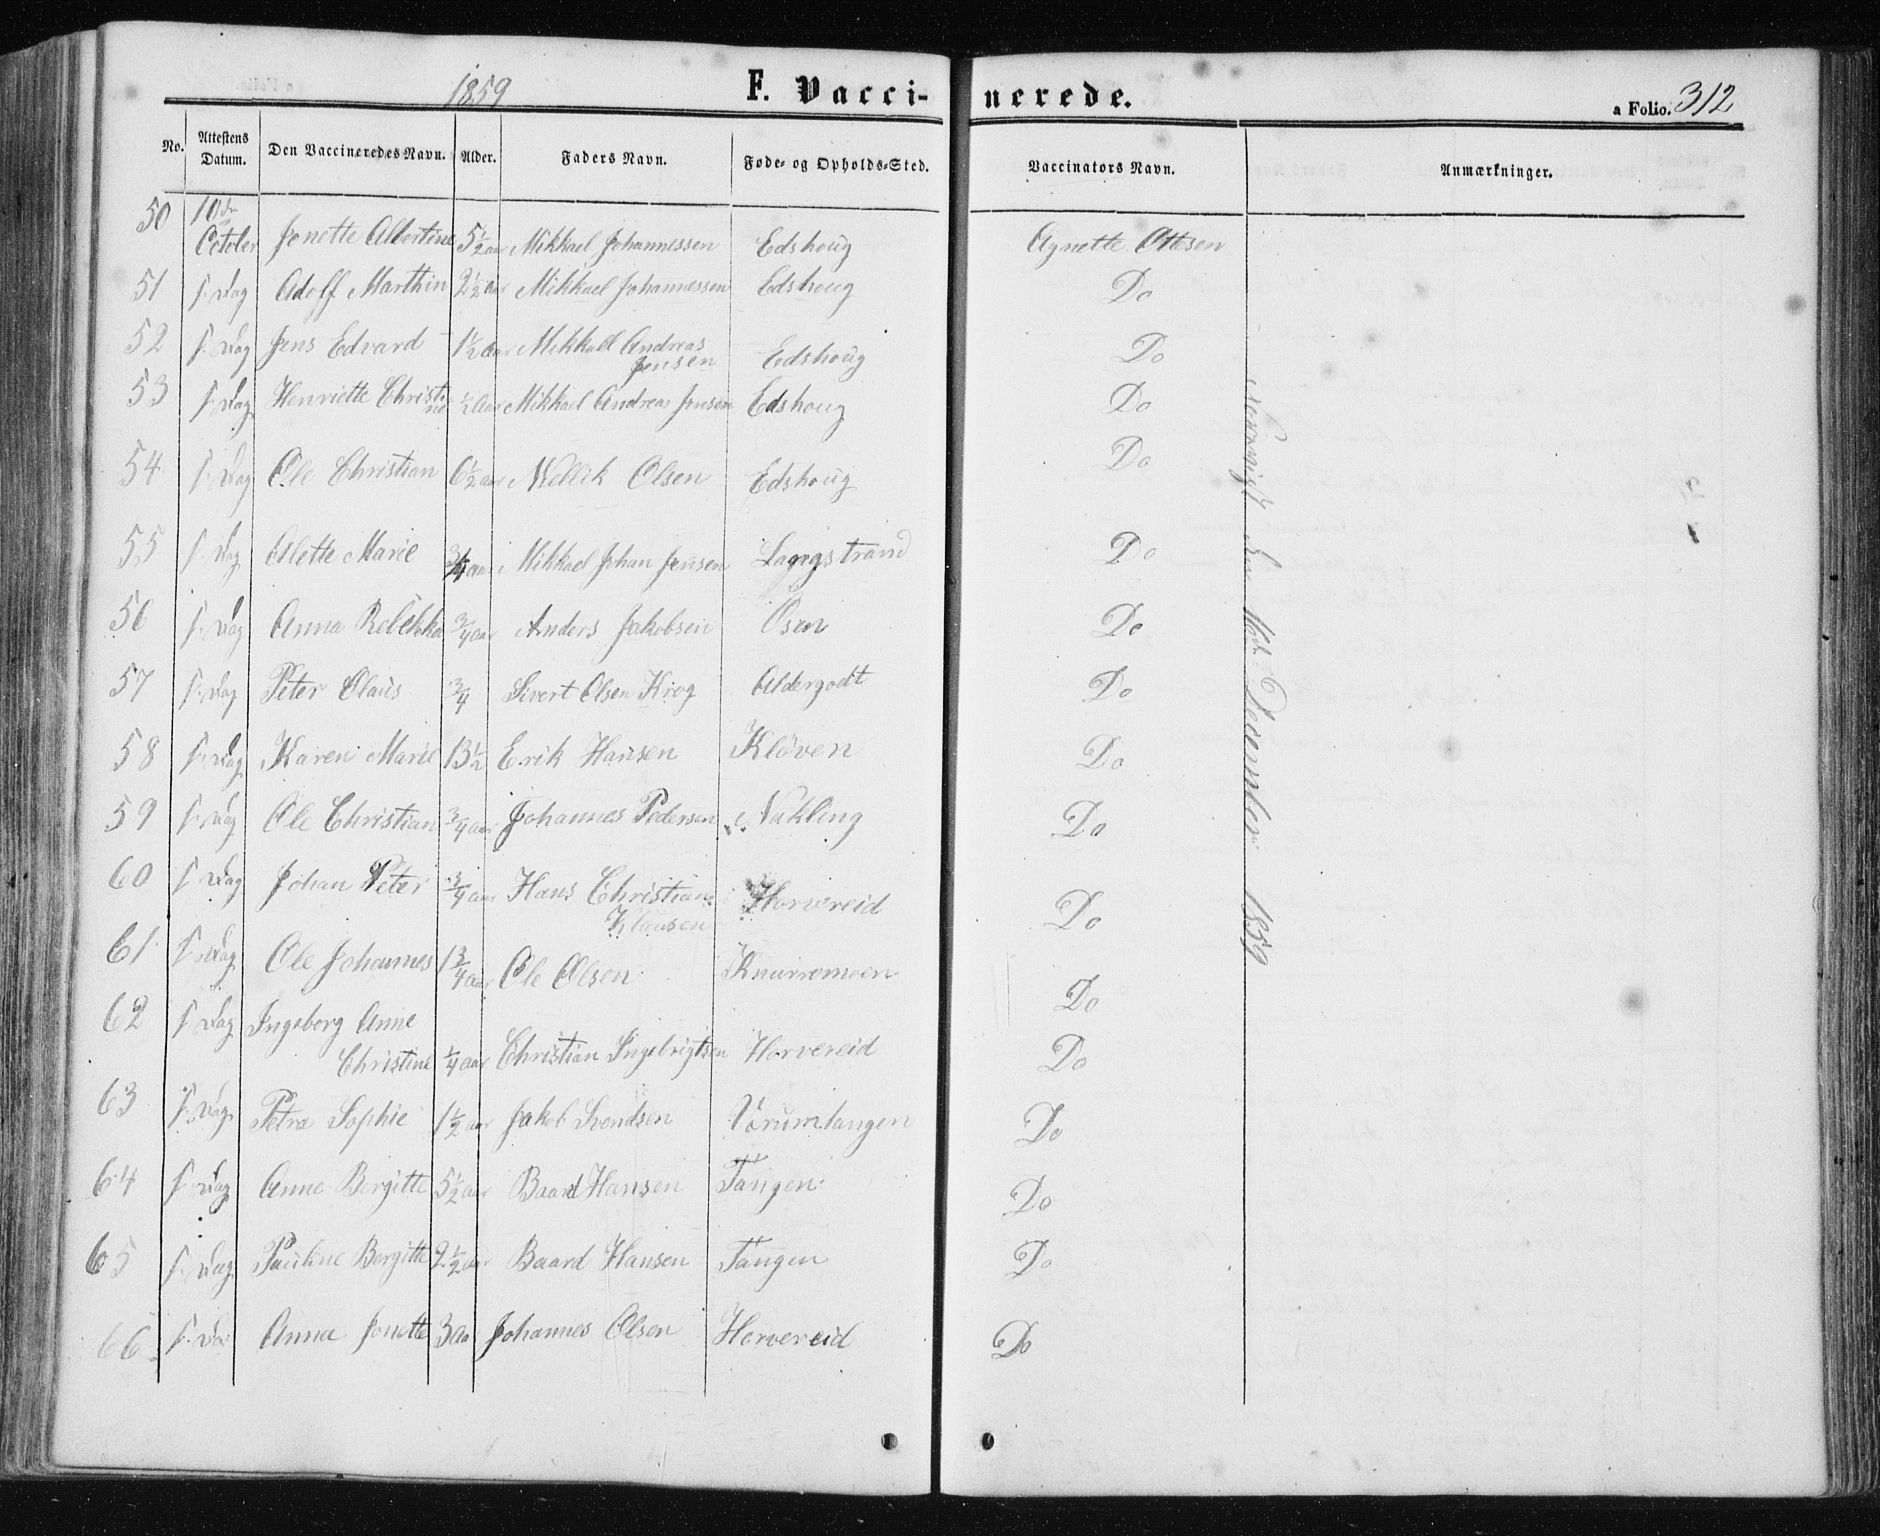 1859 F. Vacci- nerede. a Folio. 312
No. Attestens Datum. Den Vaccineredes Navn. Alder. Faders Navn. Føde- og Opholds-Sted. Vaccinators Navn. Anmærkninger.
50 10de October Jonette Albertine 5½ aar Mikkael Johannessen Edshoug Agnette Ottesen
51 s. Dag Adoff Marthin 2½ aar Mikkael Johannessen Edshoug Do
52 s. Dag Jens Edvard 1½ aar Mikkael Andreas Jensen Edshoug Do
53 s. Dag Henriette Christine ½ aar Mikkael Andreas Jensen Edshoug Do
54 s. Dag Ole Christian 6½ aar Mellik Olsen Edshoug Do
55 s. Dag Alette Marie ¾ aar Mikkael Johan Jensen Do
56 s. Dag Anna Rebekka ¾ aar Anders Jakobsen Osen Do
57 s. Dag Peter Olaus ¾ Sivert Olsen Krog Do
58 s. Dag Karen Marie 13½ Erik Hansen Kløven Do
59 s. Dag Ole Christian ¾ aar Johannes Pedersen Nakling Do
60 s. Dag Johan Peter ¾ aar Hans Christian Klausen Horvereid Do
61 s. Dag Ole Johannes 1¾ aar Ole Olsen Knarremoen Do
62 s. Dag Ingeborg Anne
Christine ¼ aar Christian Ingebrigtsen Horvereid Do
63 s. Dag Petra Sophie 1½ aar Jakob Svendsen Vorumtangen Do
64 s. Dag Anne Bergitte 5½ aar Baard Hansen Tangen Do
65 s. Dag Pauline Bergitte 2½ aar Baard Hansen Tangen Do
66 s. Da Anna Jonette 3 aa Johannes Olsen Horvereid Do
den 16de December 1859